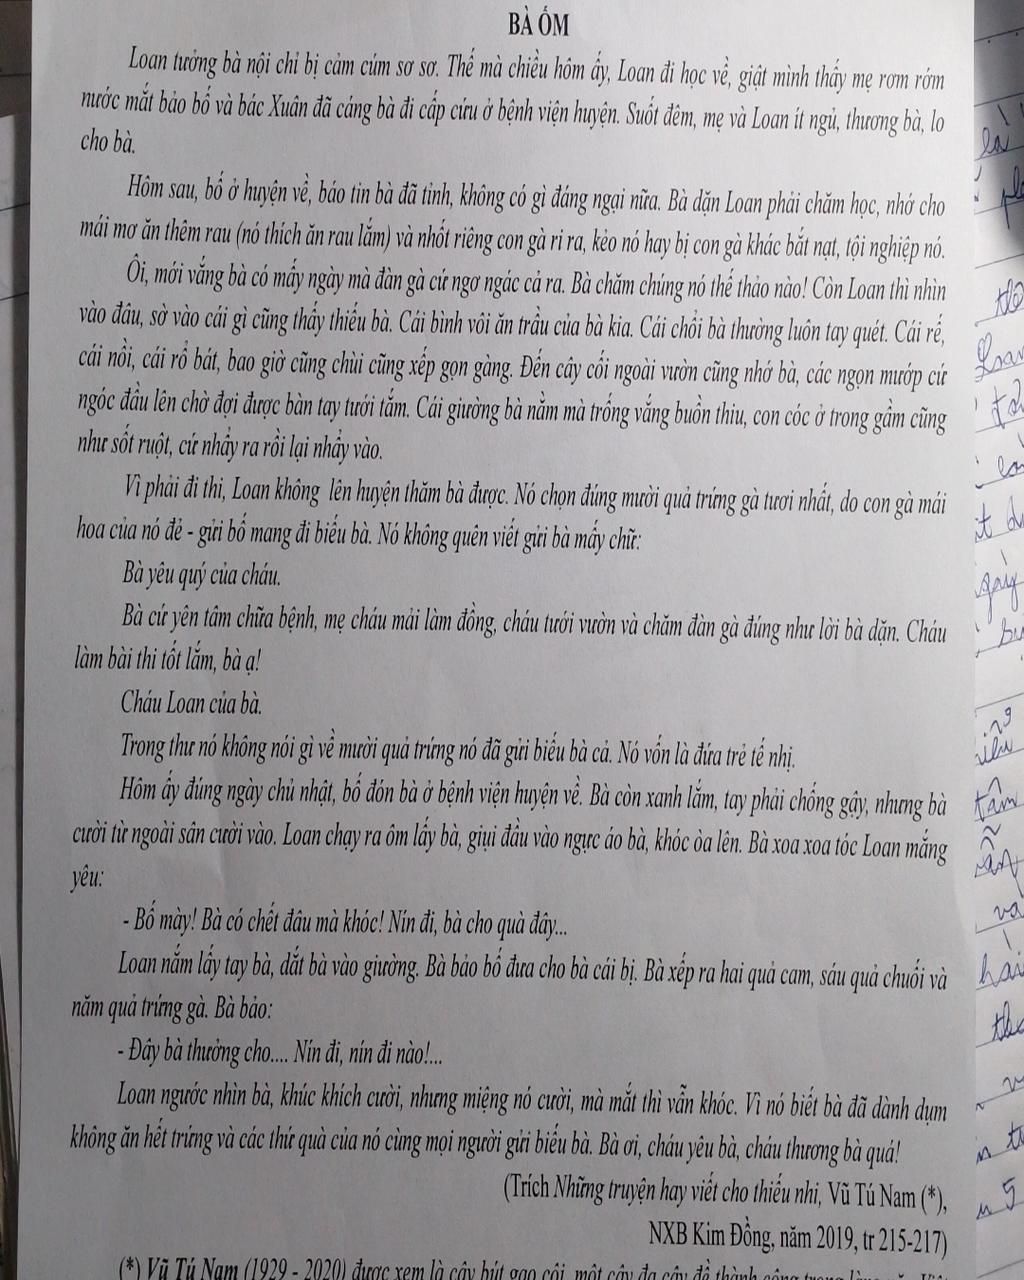 BÀ ỐM
Loan tưởng bà nội chỉ bị cảm cúm sơ sơ. Thế mà chiều hôm ấy, Loan đi học về, giật mình thấy mẹ rơm rớm
nước mắt bảo bố và bác Xuân đã cáng bà đi cấp cứu ở bệnh viện huyện. Suốt đêm, mẹ và Loan ít ngủ, thương bà, lo
cho bà.
Hôm sau, bố ở huyện về, báo tin bà đã tỉnh, không có gì đáng ngại nữa. Bà dặn Loan phải chăm học, nhớ cho
mái mơ ăn thêm rau (nó thích ăn rau lắm) và nhốt riêng con gà ri ra, kẻo nó hay bị con gà khác bắt nạt, tội nghiệp nó.
Ôi, mới vắng bà có mấy ngày mà đàn gà cứ ngơ ngác cả ra. Bà chăm chúng nó thế thảo nào! Còn Loan thì nhìn
vào đâu, sờ vào cái gì cũng thấy thiếu bà. Cái bình vôi ăn trầu của bà kia. Cái chổi bà thường luôn tay quét. Cái rế,
cái nồi, cái rổ bát, bao giờ cũng chùi cũng xếp gọn gàng. Đến cây cối ngoài vườn cũng nhớ bà, các ngọn mướp cứ
ngóc đầu lên chờ đợi được bàn tay tưới tắm. Cái giường bà nằm mà trống vắng buồn thiu, con cóc ở trong gầm cũng
như sốt ruột, cứ nhẩy ra rồi lại nhẩy vào.
Vì phải đi thi, Loan không lên huyện thăm bà được. Nó chọn đúng mười quả trứng gà tươi nhất, do con gà mái
hoa của nó đẻ - gửi bố mang đi biếu bà. Nó không quên viết gửi bà mấy chữ:
Bà yêu quý của cháu.
Bà cứ yên tâm chữa bệnh, mẹ cháu mải làm đồng, cháu tưới vườn và chăm đàn gà đúng như lời bà dặn. Cháu
làm bài thi tốt lắm, bà ạ!
Cháu Loan của bà.
Trong thư nó không nói gì về mười quả trứng nó đã gửi biếu bà cả. Nó vốn là đứa trẻ tế nhị.
Hôm ấy đúng ngày chủ nhật, bố đón bà ở bệnh viện huyện về. Bà còn xanh lắm, tay phải chống gậy, nhưng bà
cười từ ngoài sân cười vào. Loan chạy ra ôm lấy bà, giụi đầu vào ngực áo bà, khóc òa lên. Bà xoa xoa tóc Loan mắng
yêu:
- Bố mày! Bà có chết đâu mà khóc! Nín đi, bà cho quà đây...
Loan nắm lấy tay bà, dắt bà vào giường. Bà bảo bố đưa cho bà cái bị. Bà xếp ra hai quả cam, sáu quả chuối và
năm quả trứng gà. Bà bảo:
- Đây bà thưởng cho.... Nín đi, nín đi nào!...
Loan ngước nhìn bà, khúc khích cười, nhưng miệng nó cười, mà mắt thì vẫn khóc. Vì nó biết bà đã dành dụm
không ăn hết trứng và các thứ quà của nó cùng mọi người gửi biếu bà. Bà ơi, cháu yêu bà, cháu thương bà quá!
(Trích Những truyện hay viết cho thiếu nhi, Vũ Tú Nam (*),
NXB Kim Đồng, năm 2019, tr 215-217)
(*) Vũ Tú Nam (1929 - 2020) được xem là cây bút gạo cội, một cây đa cây đề thành công trong